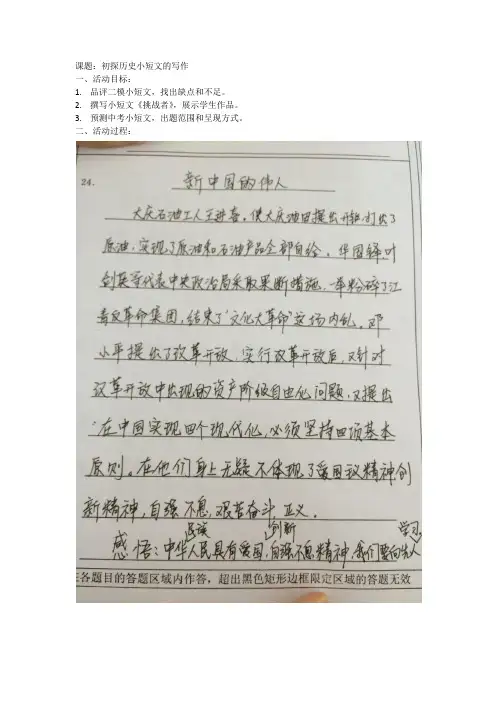 课题：初探历史小短文的写作
一、活动目标：
1. 品评二模小短文，找出缺点和不足。
2. 撰写小短文《挑战者》，展示学生作品。
3. 预测中考小短文，出题范围和呈现方式。
二、活动过程：
24. 新中国的伟人
大庆石油工人王进喜，使大庆油田提出开钻打出了
原油，实现了原油和石油产品全部自给。华国锋、叶
剑英等代表中央政治局采取果断措施，一举粉碎了江
青反革命集团，结束了“文化大革命”这场内乱。邓
小平提出了改革开放，实行改革开放后，又针对
改革开放中出现的资产阶级自由化问题，又提出
“在中国实现四个现代化，必须坚持四项基本
原则。在他们身上无疑不体现了爱国议精神，创
新精神，自强不息，艰苦奋斗，正义。
民族 创新 学习
感悟：中华人民具有爱国，自强不息精神，我们要向先人
在各题目的答题区域内作答，超出黑色矩形边框限定区域的答题无效